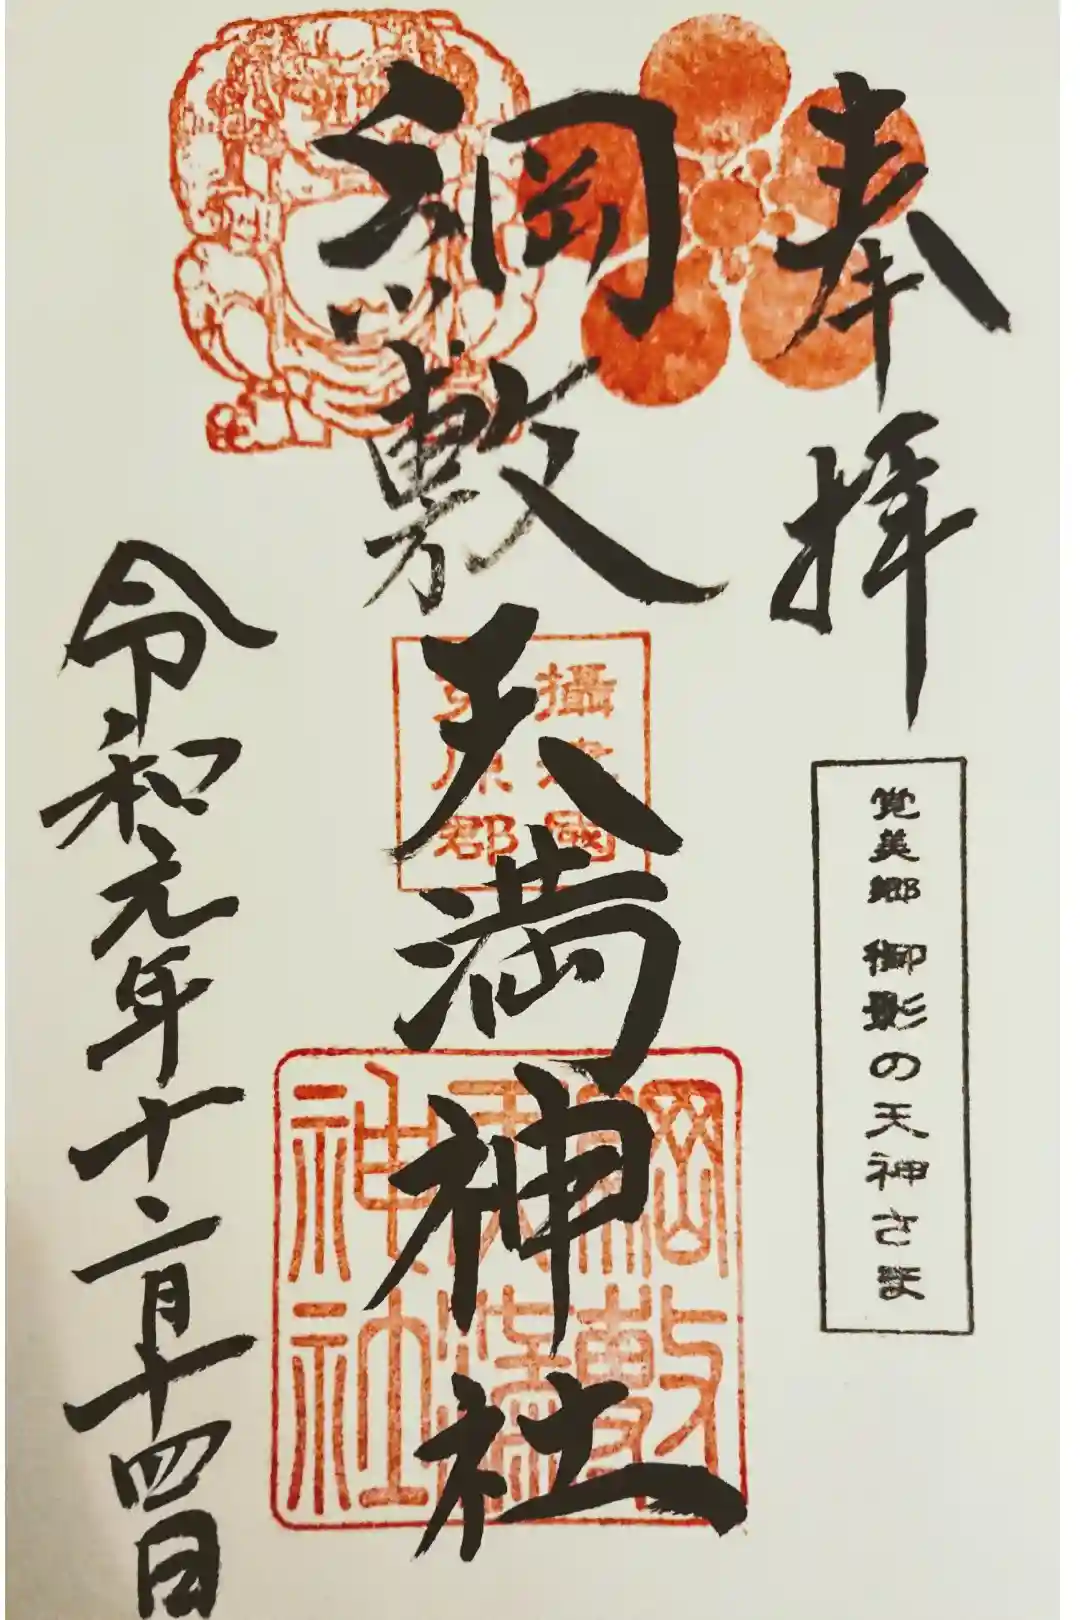 奉拝
覚美郷 御影の天神さま
綱敷天満神社
攝津國
原郡
綱敷
天満
神社
令和元年十二月十四日